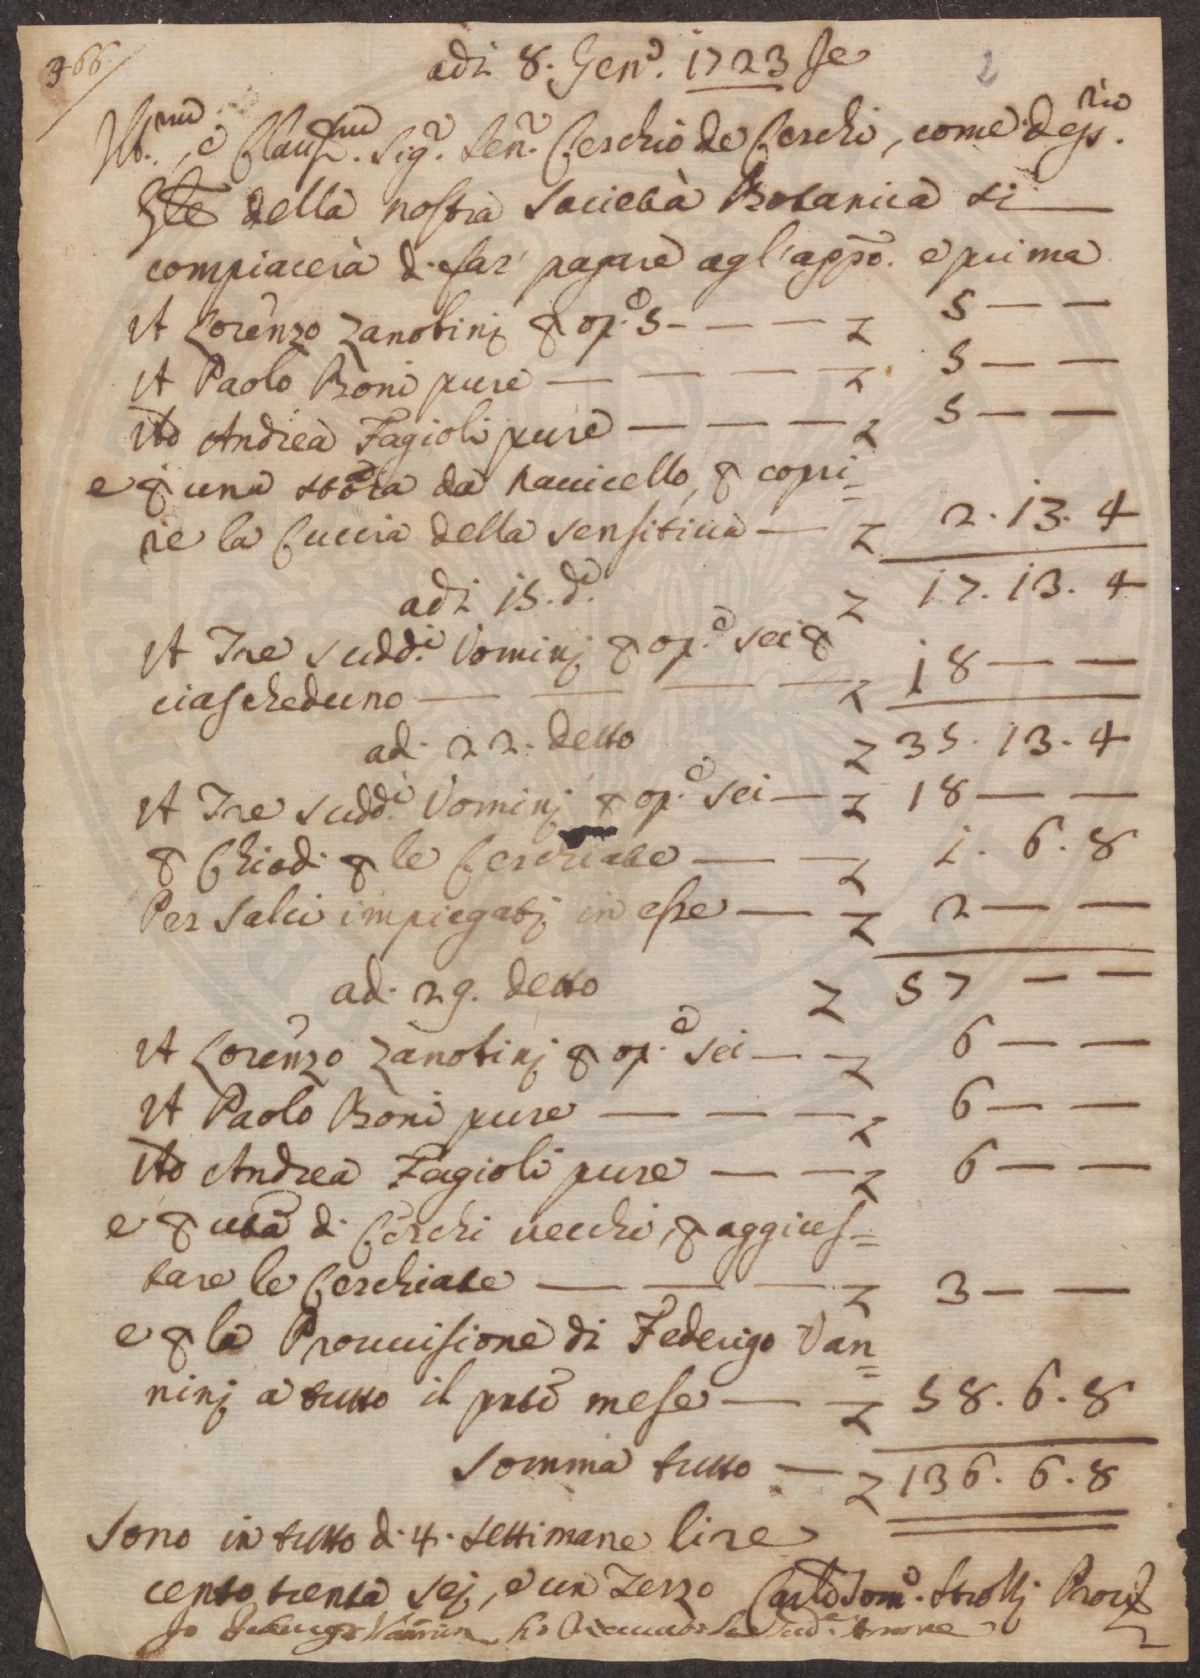 366
2
adi 8. Gen.º 1723 Je
Ill.mo, e Clariss.mo Sig.r Sen.r Cerchio de Cerchi, come Deposs.rio
Gle della nostra Società Botanica si
compiacerà di far' pagare agl'app.º e prima
A Lorenzo Zanobinj p op.e 5 - - - - Z 5 — —
A Paolo Boni pure — — — — Z 5 — —
Ad Andrea Fagioli pure — — — Z 5 — —
e p una stora da Navicello, p copri=
re la Cuccia della Sensitiva — Z 2. 13. 4
adi 15. d.º Z 17. 13. 4
A Tre sudd.i Uominj p op.e sei p
ciascheduno — — — — Z 18 — —
ad. 22. detto Z 35. 13. 4
A Tre sudd.i Uominj p op.e sei — Z 18 — —
p Chiodi p le Cerchiate — — Z 1. 6. 8
Per Salci impiegatj in esse — Z 2 — —
ad. 29. detto Z 57 — —
A Lorenzo Zanobinj p op.e sei — Z 6 — —
A Paolo Boni pure — — — Z 6 — —
Ad Andrea Fagioli pure — — Z 6 — —
e p di Cerchi vecchi, p aggius=
tare le Cerchiate — — — Z 3 — —
e p la Provvisione di Federigo Van=
ninj a tutto il pnte mese — — Z 58. 6. 8
Somma tutto — Z 136. 6. 8
Sono in tutto di 4. settimane lire
cento trenta sej, e un Terzo Carlo Tom.º Strozzj Prov.re
Io Federigo Vannini ho Riceuuto la Sud.a Somma